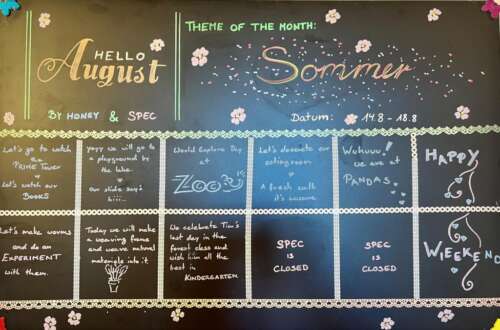 HELLO
August
BY HONEY & SPEC
THEME OF THE MONTH:
Sommer
Datum: 14.8 - 18.8
Let's go to watch
the
PRIME TOWER
Let's watch our
BOOKS
yayy we will go to
a playground by
the lake.
Our slide says
hiii...
World Explore Day
at
Zoo
Let's decorate our
eating room
A fresh
it's awesome
Wuhuuu!
we are at
PANDAS
HAPPY
Let's make worms
and do an
EXPERIMENT
with them.
Today we will make
a weaving frame
and weave natural
materials into it
We celebrate Tim's
last day in the
forest class and
wish him all the
best in
KINDERGARTEN
SPEC
IS
CLOSED
SPEC
IS
CLOSED
WIEEKEND